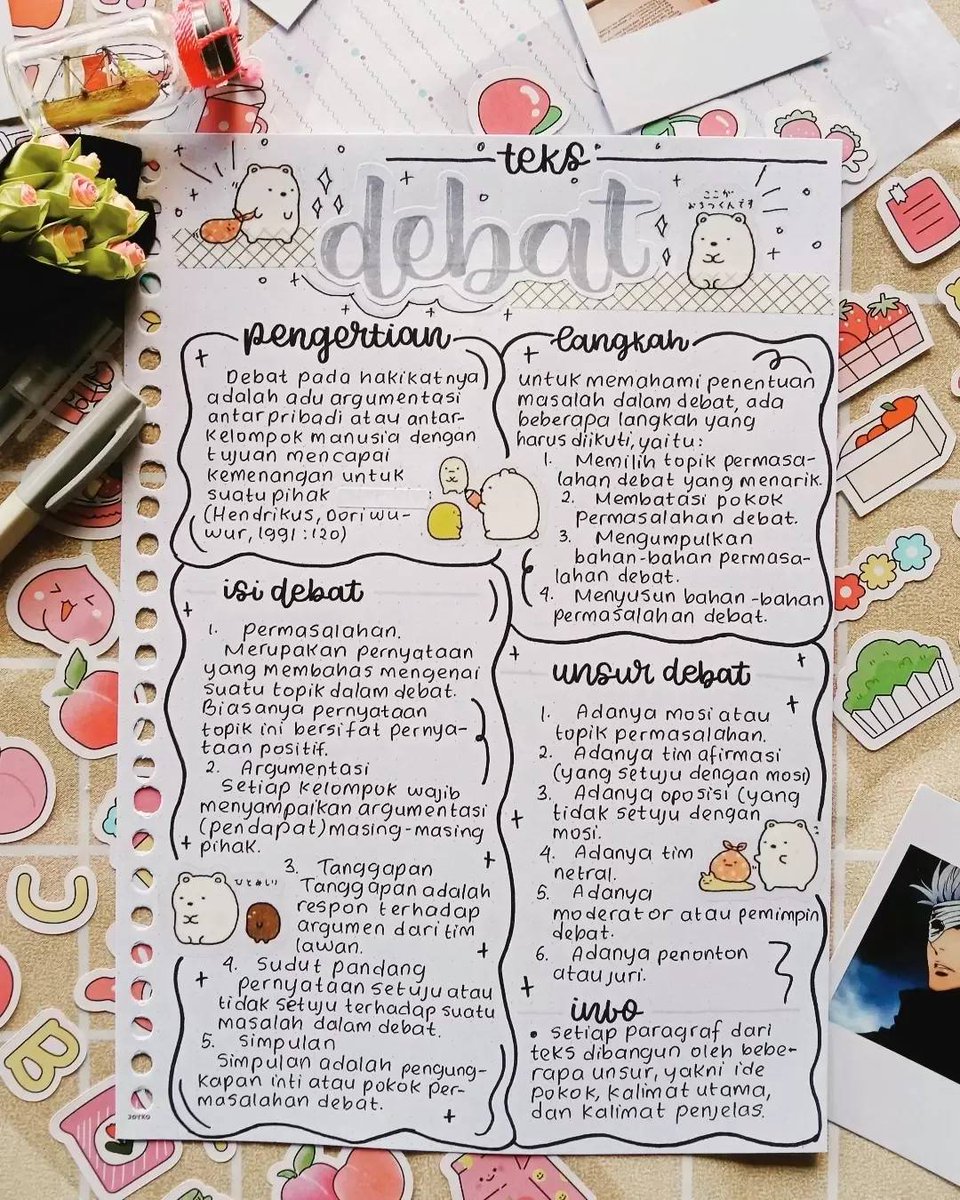 teks
debat
ここが
おちつくんです
pengertian
Debat pada hakikatnya
adalah adu argumentasi
antar pribadi atau antar-
kelompok manusia dengan
tujuan mencapai
kemenangan untuk
suatu pihak :
(Hendrikus, Dori wu-
wur, 1991 : 120)
langkah
untuk memahami penentuan
masalah dalam debat, ada
beberapa langkah yang
harus diikuti, yaitu:
1. Memilih topik permasa-
lahan debat yang menarik.
2. Membatasi pokok
permasalahan debat.
3. Mengumpulkan
bahan-bahan permasa-
lahan debat.
4. Menyusun bahan-bahan
permasalahan debat.
isi debat
1. permasalahan.
Merupakan pernyataan
yang membahas mengenai
suatu topik dalam debat.
Biasanya pernyataan
topik ini bersifat pernya-
taan positif.
2. Argumentasi
Setiap kelompok wajib
menyampaikan argumentasi
(pendapat) masing-masing
pihak.
3. Tanggapan
Tanggapan adalah
respon terhadap
argumen dari tim
lawan.
4. Sudut pandang
pernyataan setuju atau
tidak setuju terhadap suatu
masalah dalam debat.
5. Simpulan
Simpulan adalah pengung-
kapan inti atau pokok per-
masalahan debat.
unsur debat
1. Adanya mosi atau
topik permasalahan.
2. Adanya tim afirmasi
(yang setuju dengan mosi)
3. Adanya oposisi (yang
tidak setuju dengan
mosi.
4. Adanya tim
netral.
5. Adanya
moderator atau pemimpin
debat.
6. Adanya penonton
atau juri.
info
• setiap paragraf dari
teks dibangun oleh bebe-
rapa unsur, yakni ide
pokok, kalimat utama,
dan kalimat penjelas.
JOYKO
B